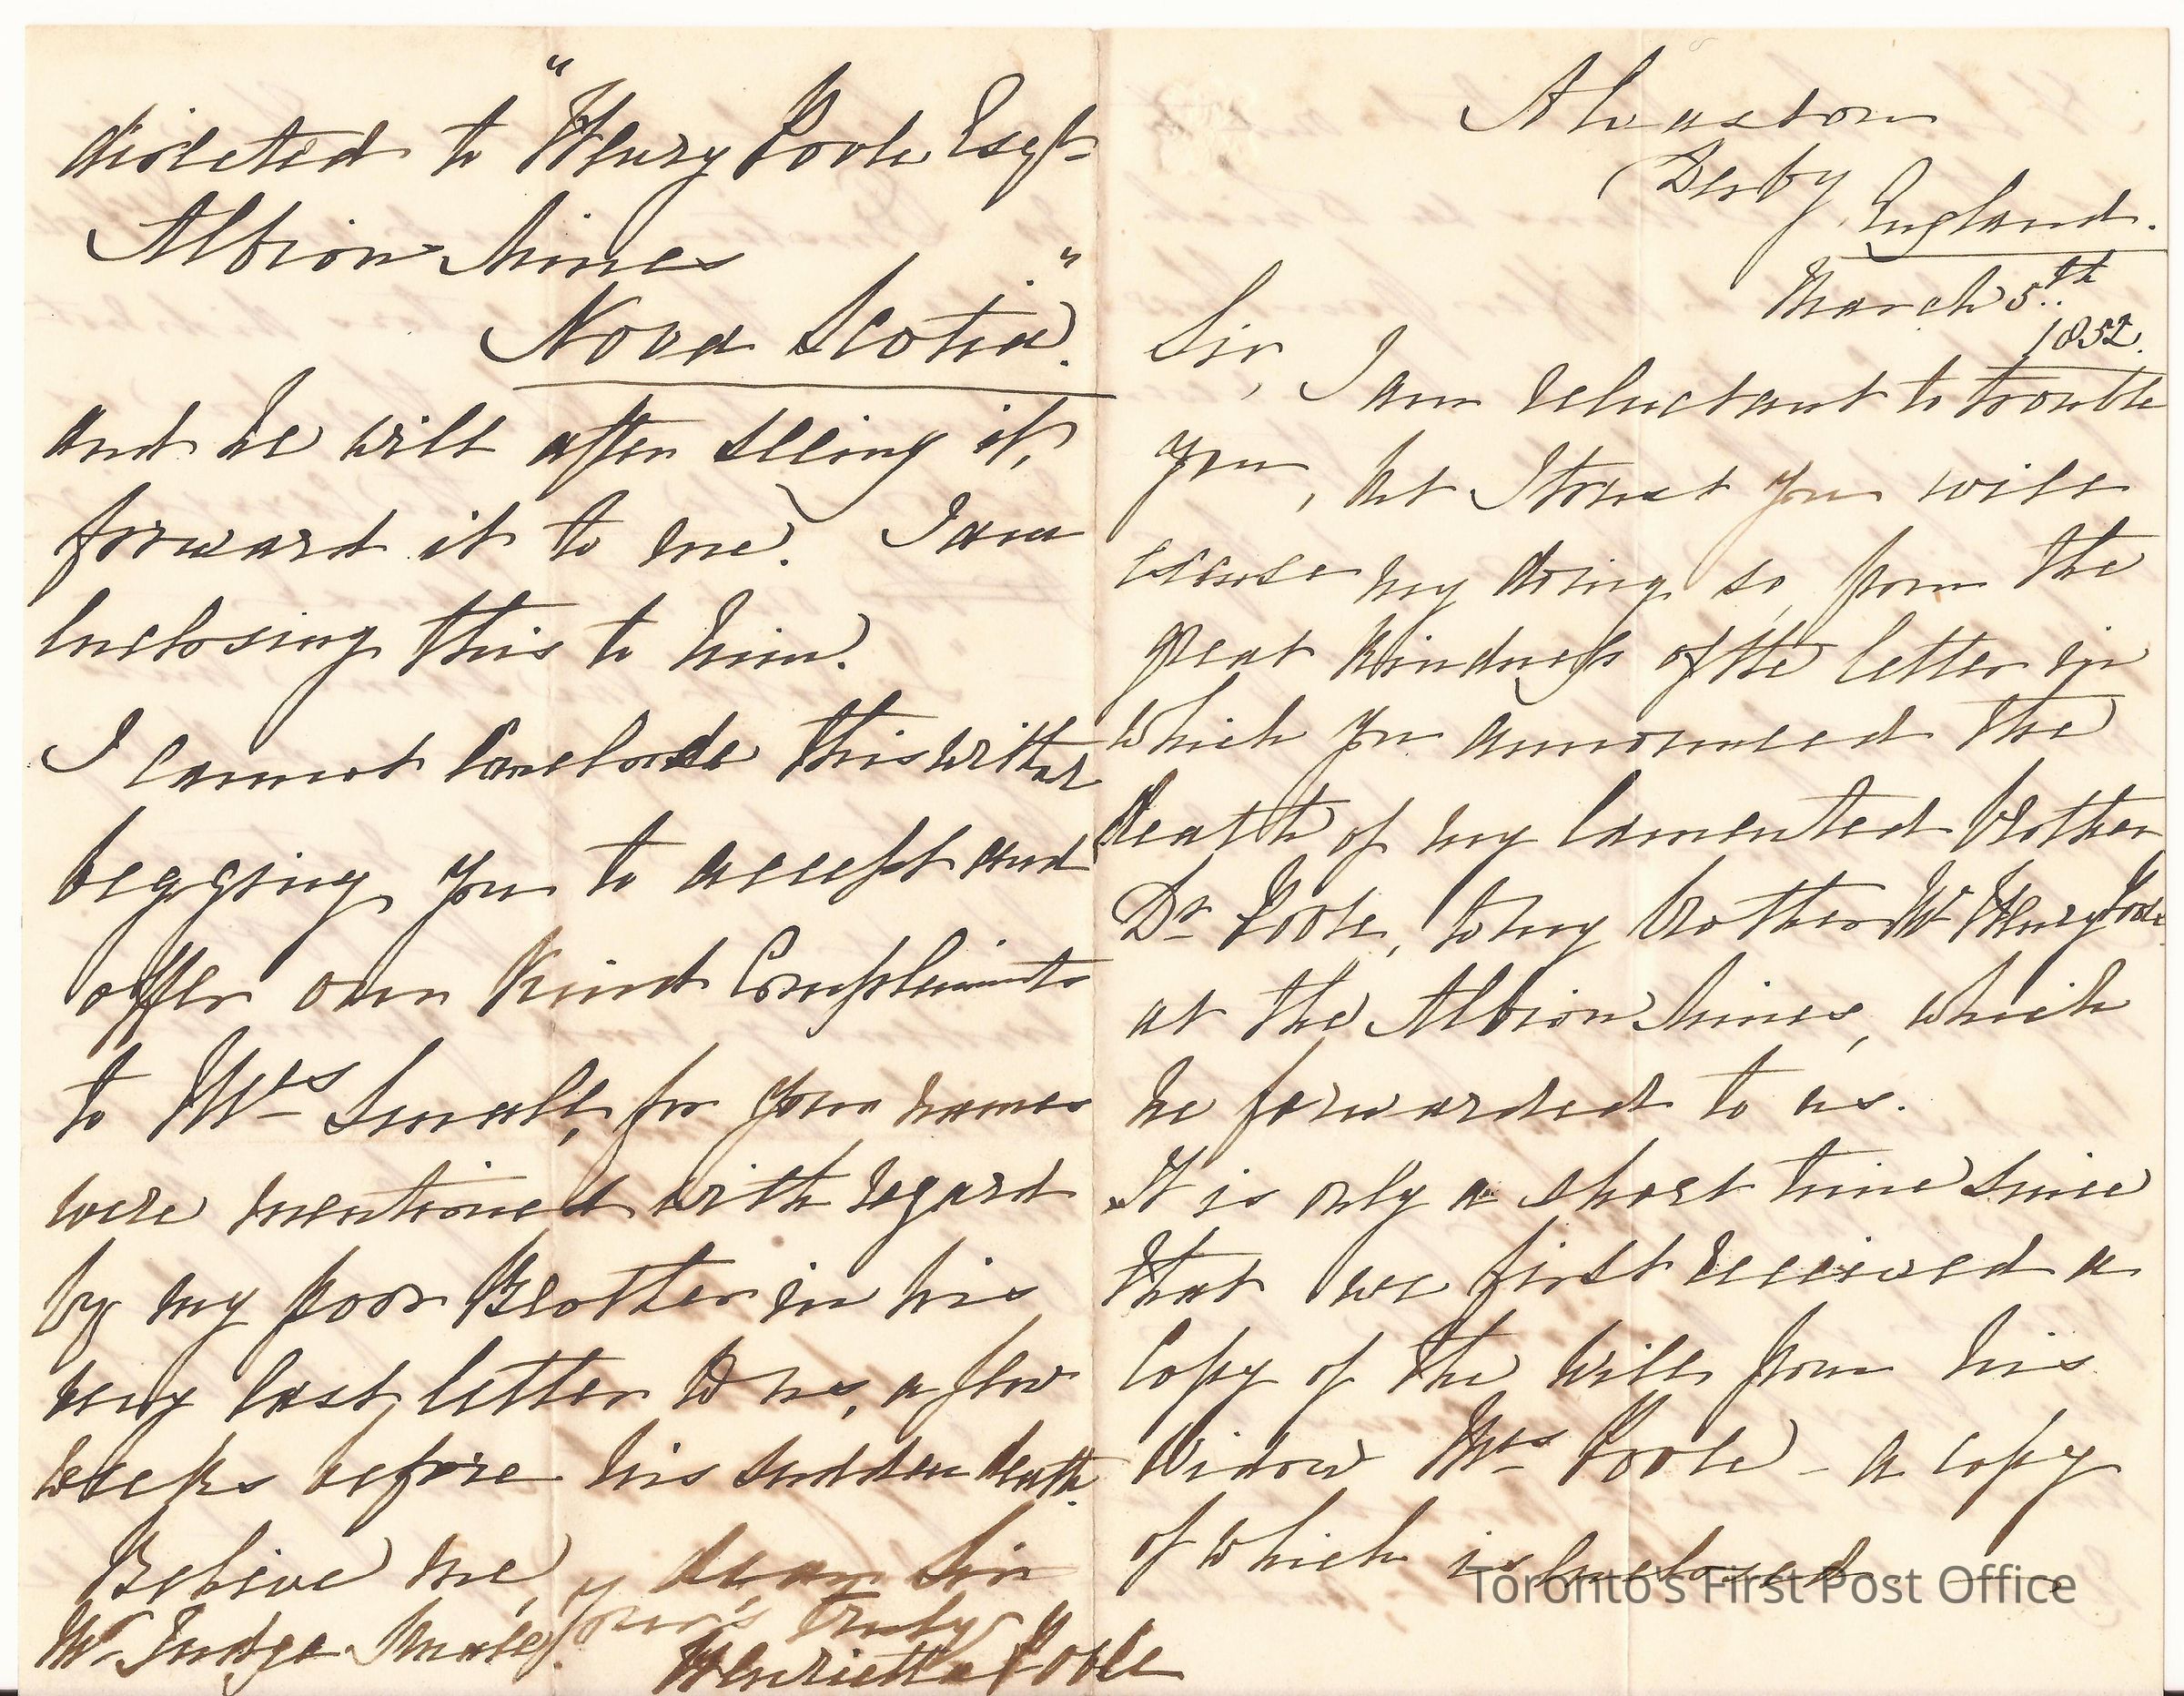 Alvaston
Derby
England.
March 5th
1852.
Sir,
I am reluctant to trouble
you, but I trust you will
excuse my doing so, from the
great kindness of the letter in
which you announced the
death of my lamented brother
Dr Poole, to my brother Mr Henry Poole
at the Albion Mines, which
he forwarded to us.
It is only a short time since
that we first received a
Copy of the Will from his
Widow Mrs Poole - a copy
of which is Enclosed
directed to "Henry Poole Esqr
Albion Mines
Nova Scotia."
and he will after seeing it,
forward it to me. I am
Enclosing this to him.
I cannot Conclude this
begging you to accept and
offer our kind Compliments
to Mrs Small, for your names
were mentioned with regard
by my poor Brother in his
very last letter to us, a few
weeks before his sudden death.
Believe me, dear Sir
Your's truly
Henrietta Poole
Mr Judge Small.
Toronto's First Post Office